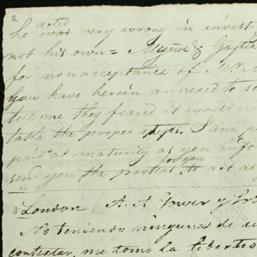 2 acted
he was very wrong in invest
not his own = Muñoz &
for nonacceptance of Mr.
You have herein annexed to
tell me they feared it would no
take the proper steps. I am
paid at maturity as you info
for you
send you the protest to act a
3 London A. A. Gower y
No teniendo ninguna de
contestar, me tomo la libert